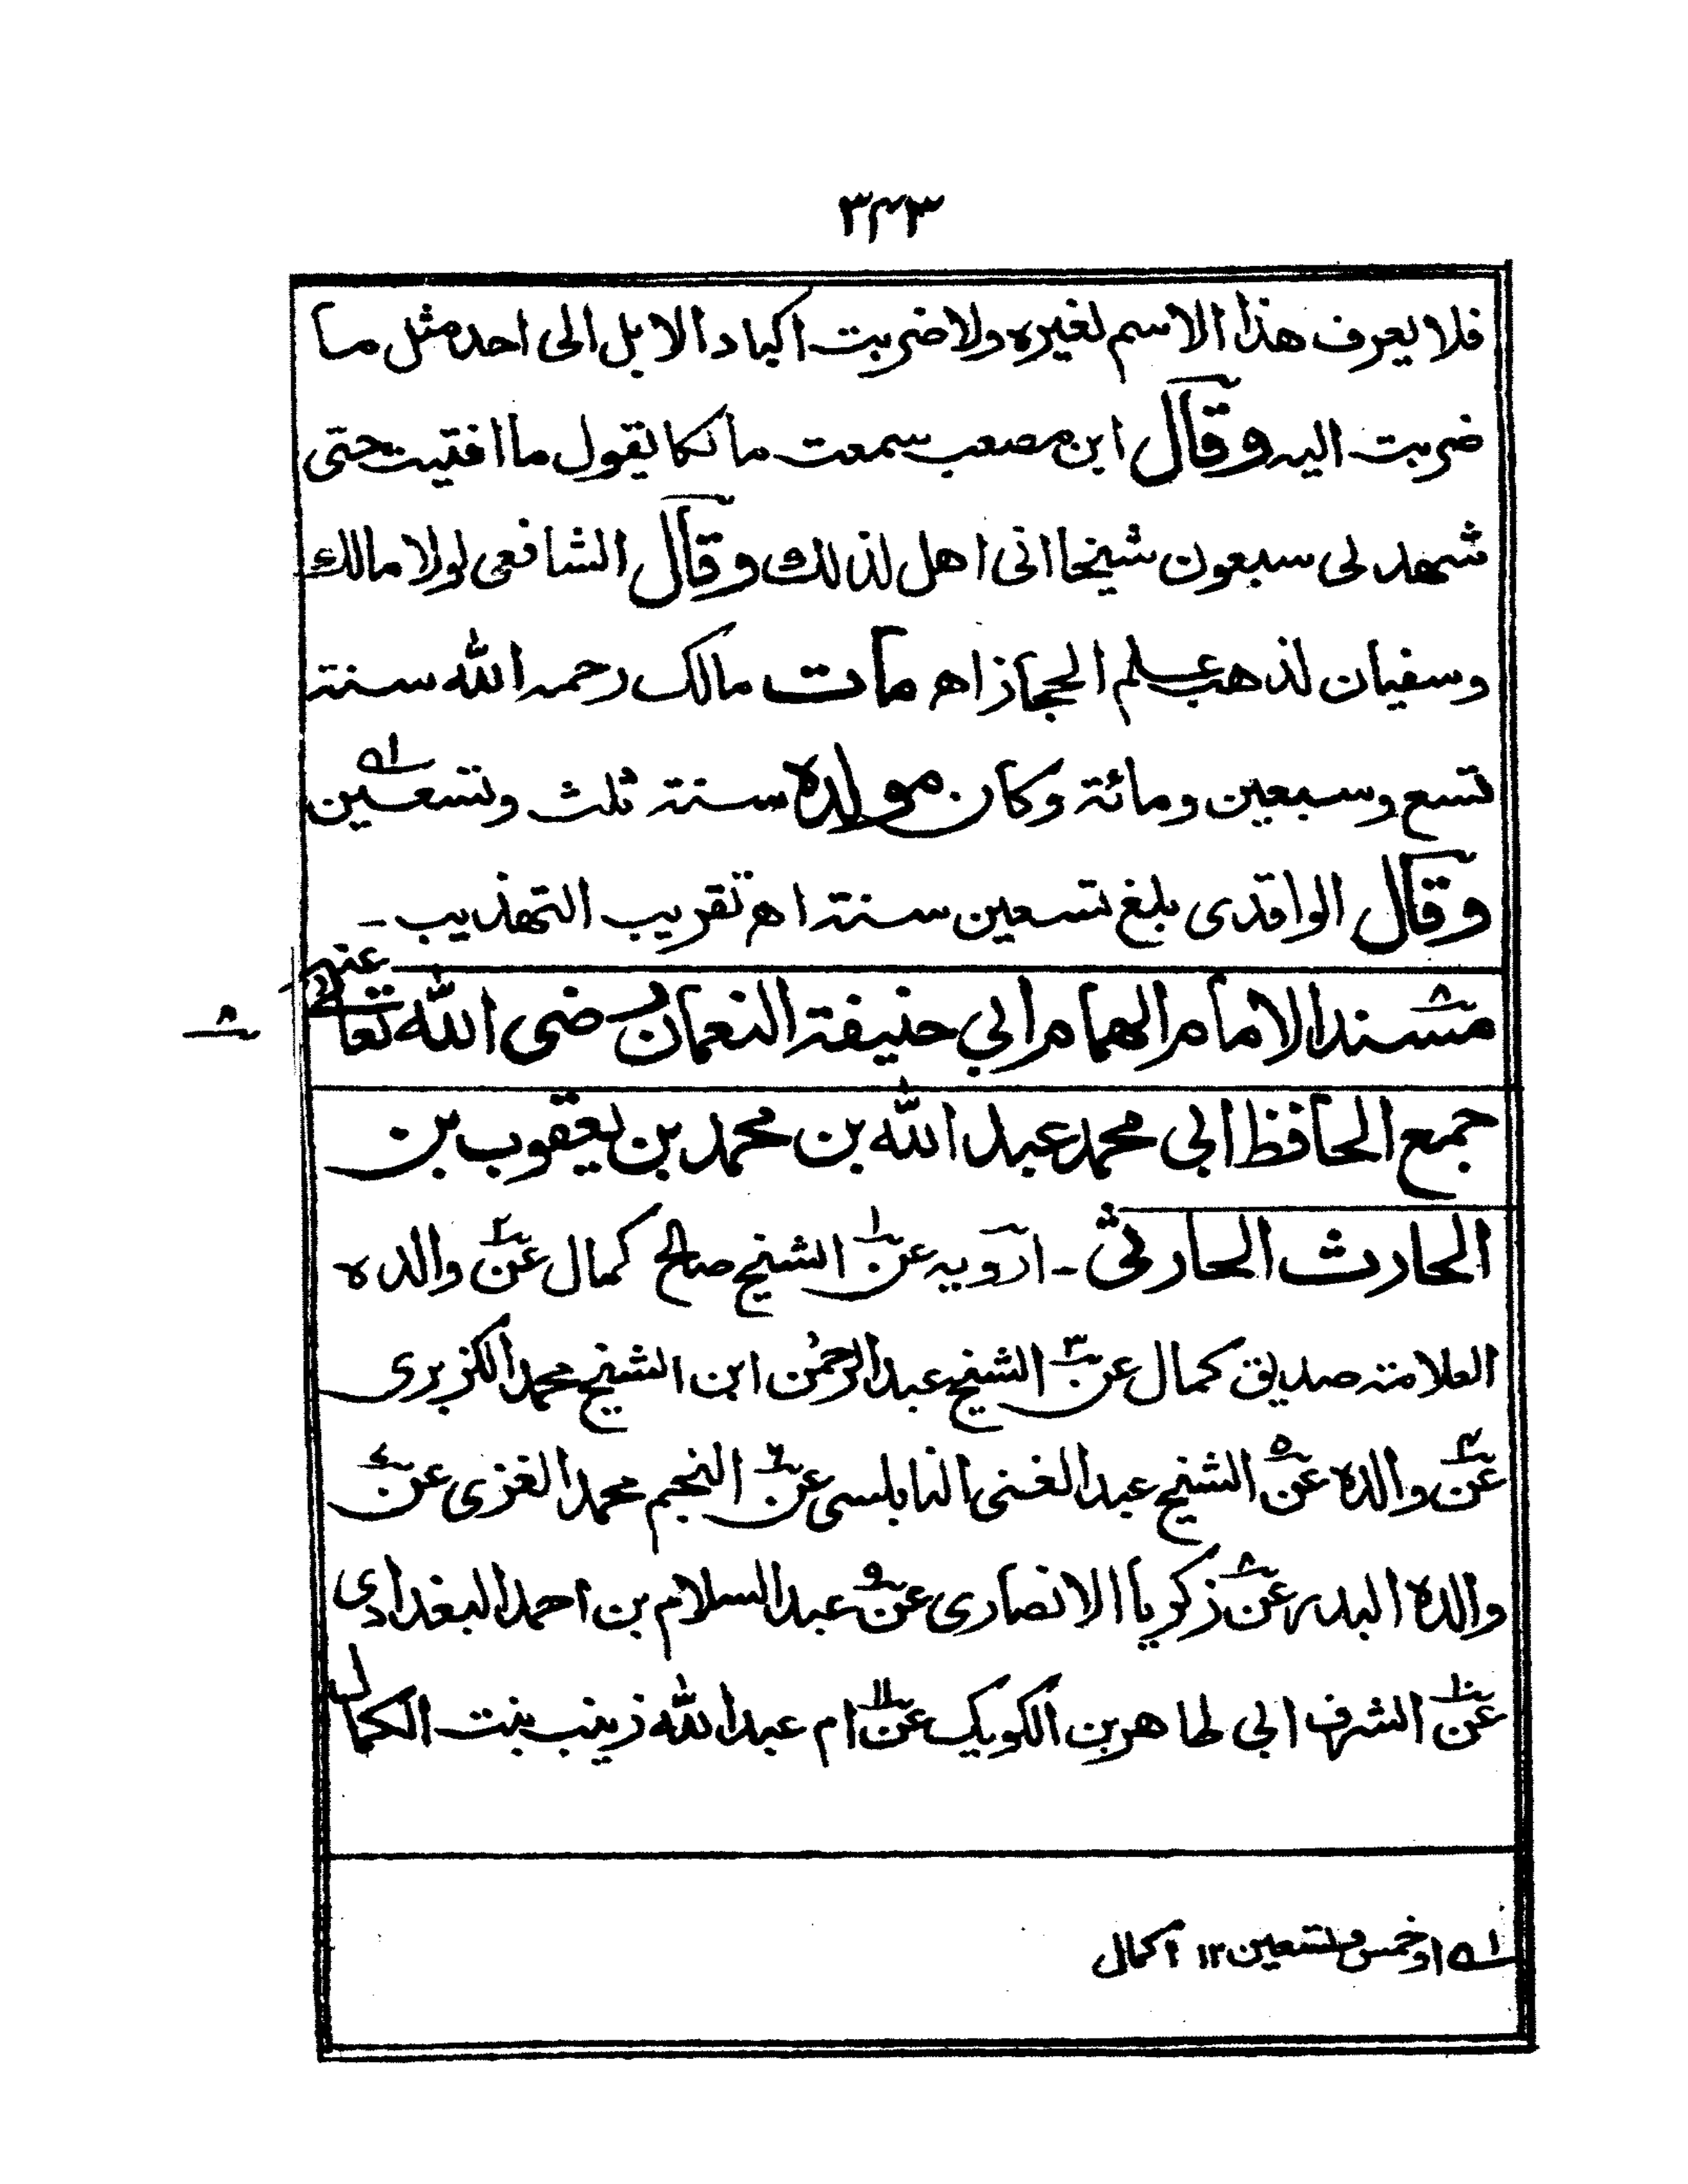 ۳۴۳
فلا يعرف هذا الاسم لغيره ولا ضربت اكباد الابل الى احد مثل ما
ضربت اليه وقال ابن مصعب سمعت مالكا يقول ما افتيت حتى
شهد لى سبعون شيخا انى اهل لذلك وقال الشافعى لولا مالك
وسفيان لذهب علم الحجاز اه مات مالك رحمه الله سنة
تسع وسبعين ومائة وكان مولده سنة ثلث وتسعين ١ه
وقال الواقدى بلغ تسعين سنة اه تقريب التهذيب ـ
٨ مسند الامام الهمام ابي حنيفة النعمان رضى الله تعالى عنه ٨
جمع الحافظ ابى محمد عبد الله بن محمد بن يعقوب بن
الحارث الحارثى ـ ارويه عن ١ الشيخ صالح كمال عن ٢ والده
العلامة صديق كمال عن ٣ الشيخ عبد الرحمٰن ابن الشيخ محمد الكزبرى
عن ۴ والده عن ٥ الشيخ عبد الغنى النابلسى عن ٦ النجم محمد الغزى عن ٧
والده البدر عن ٨ زكريا الانصارى عن ٩ عبد السلام بن احمد البغدادى
عن ١٠ الشرف ابى طاهر بن الكويك عن ١١ ام عبد الله زينب بنت الكمال
١ه او خمس وتسعين ١٢ اكمال